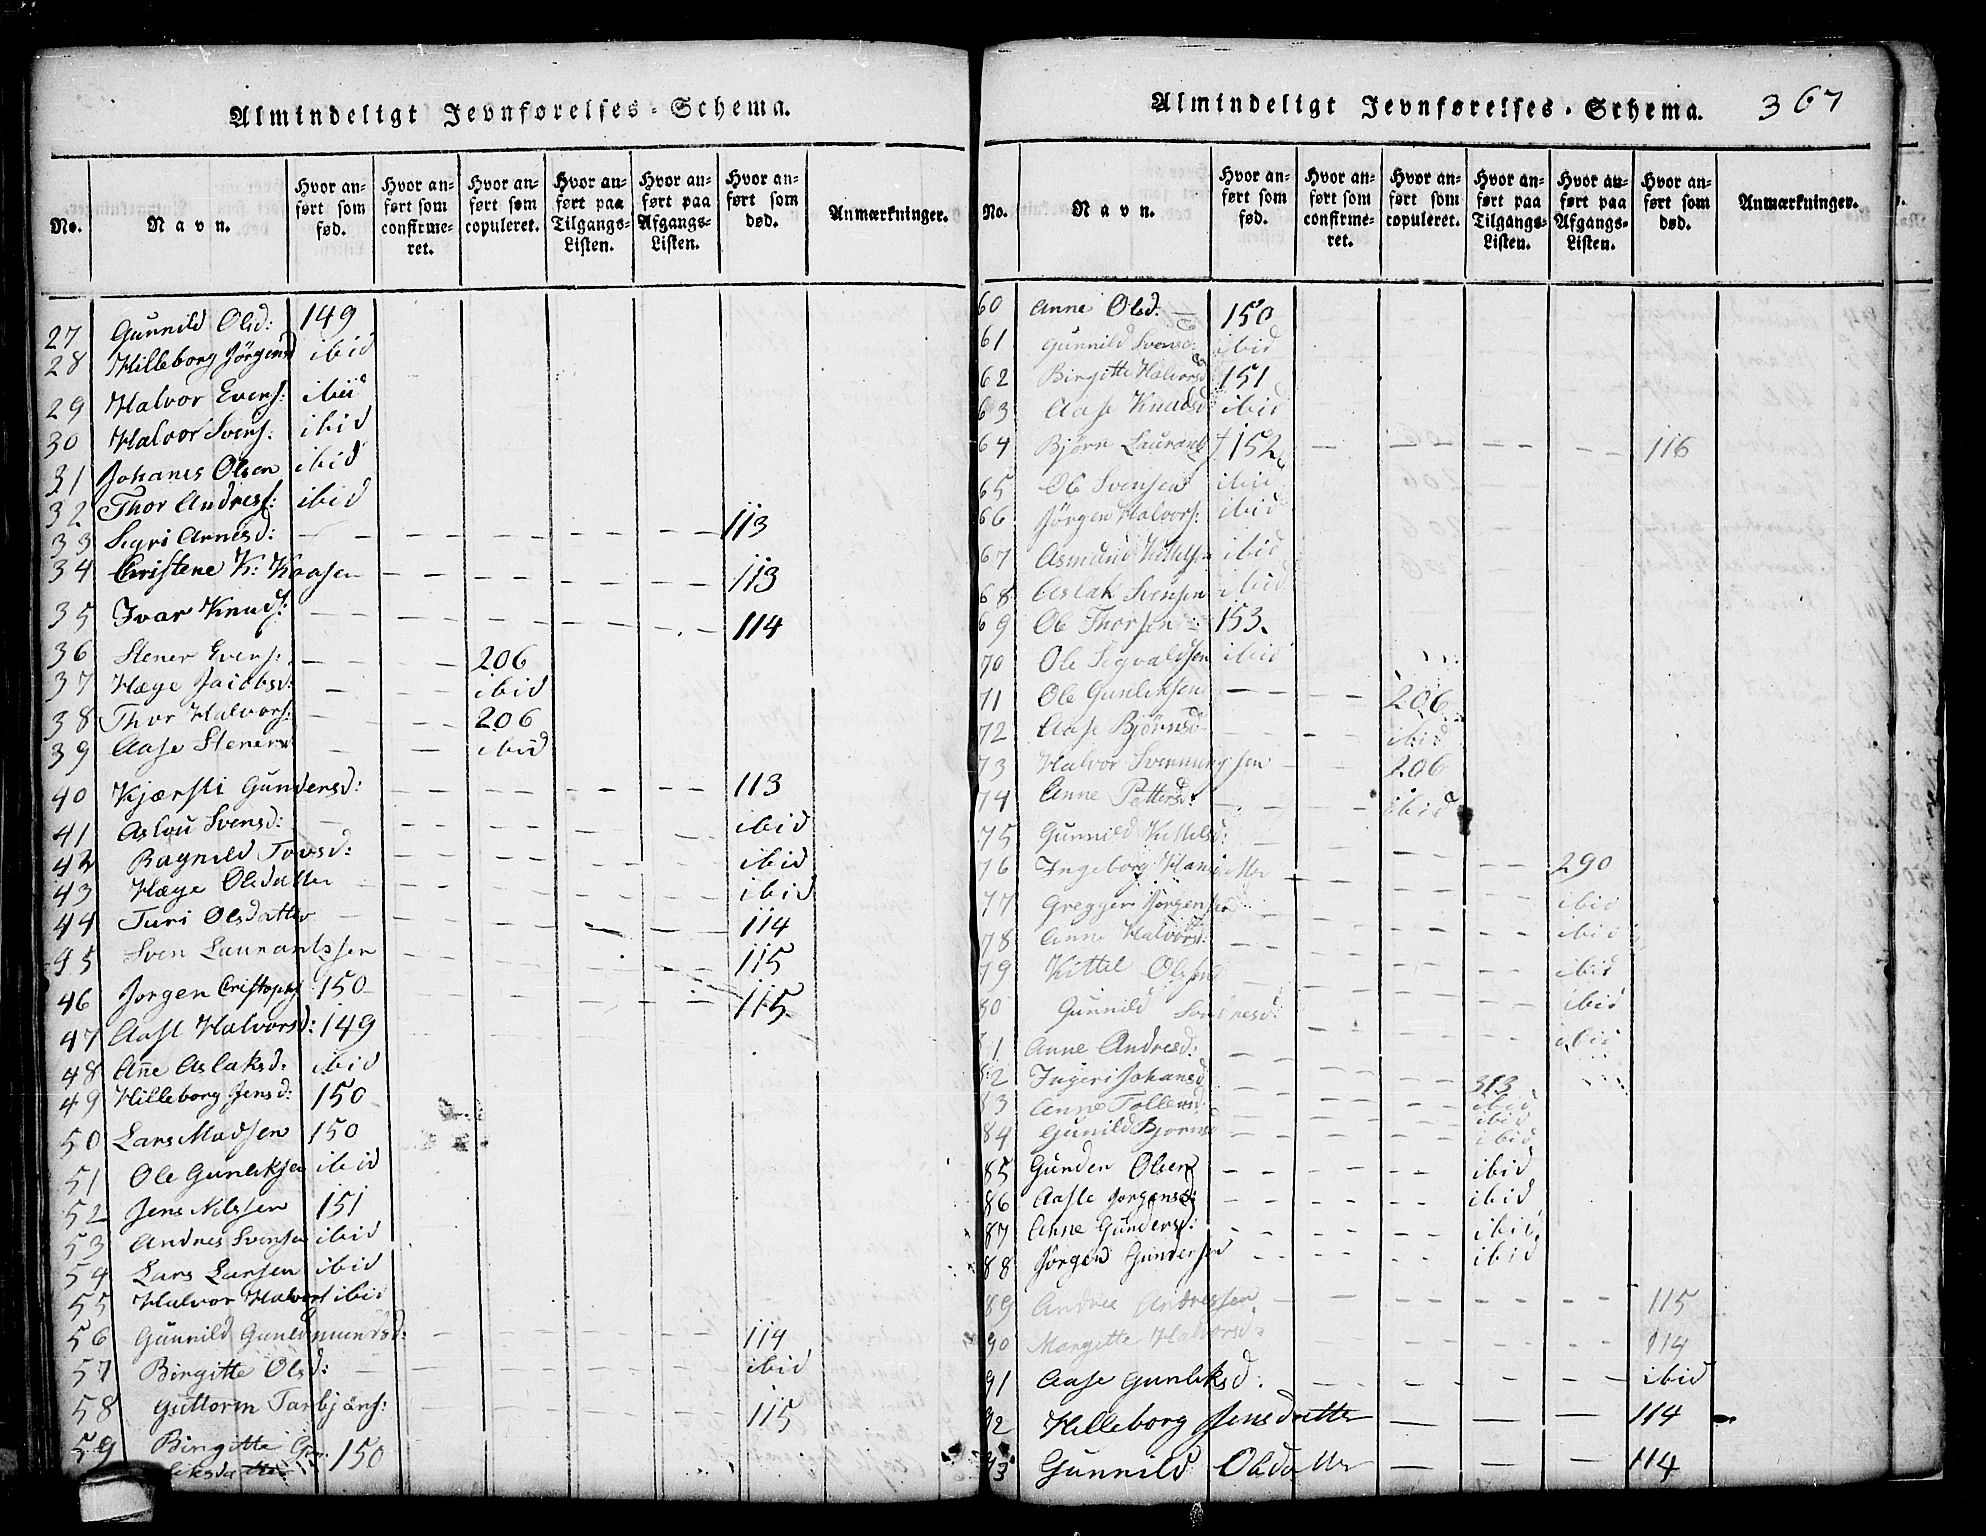 Almindeligt Jevnførelses-Schema.
No. Navn. Hvor anført som fød. Hvor anført som confirmeret. Hvor anført søm copuleret. Hvor anført paa Tilgangs-Listen. Hvor anført paa Afgangs-Listen. Hvor anført som død. Anmærkninger.
27 Gunnild Olsd: 149
28 Hilleborg Jörgensd ibid
29 Halvor Evens: ibid
30 Halvor Svens: ibid
31 Johanes Olsen ibid
32 Thor Andress: ibid
33 Sigri Arnesd: — — — — — 113
34 Christene K: Kaasen — — — — — 113
35 Ivar Knuds: — — — — — 114
36 Stener Evens: — — 206
37 Hæge Jacobsd: — — ibid
38 Thor Halvors: — — 206
39 Aase Stenersd — — ibid
40 Kjærsti Gundersd: — — — — — 113
41 Aslou Svensd: — — — — — ibid
42 Ragnild Tovsd: — — — — — ibid
43 Hæge Olsdatter — — — — — ibid
44 Turi Olsdatter — — — — — 114
45 Sven Laurantssen — — — — — 115
46 Jorgen Cristophs 150 — — — — — 115
47 Aase Halvorsd: 149
48 Añe Aslaksd: ibid
49 Hilleborg Jensd: 150
50 Lars Madsen 150
51 Ole Gunleksen ibid
52 Jens Nilssen 151
53 Andres Svensen ibid
54 Lars Larsen ibid
55 Halvor Halvors ibid
56 Gunnild Guldmundsd: — — — — — 114
57 Birgitte Olsd: — — — — — ibid
58 Guttorm Tarbjöns: — — — — — 115
59 Birgitte Gun- 150
leksdatter
Almindeligt Jevnførelses-Schema. 367
No. Navn. Hvor anført som fød. Hvor anført som confirmeret. Hvor anført som copuleret. Hvor anført paa Tilgangs-Listen. Hvor anført paa Afgangs-Listen. Hvor anført som død. Anmærkninger.
60 Anne Olsd: — 150
61 Gunnild Svensd: ibid
62 Birgitte Halvorsd 151
63 Aase Knudsd ibid
64 Bjørn Laurants 152 — — — — 116
65 Ole Svensen ibid
66 Jörgen Halvors: ibid
67 Asmund Kittels ibid
68 Aslak Svensen ibid
69 Ole Thorsen 153
70 Ole Sigvaldsen ibid
71 Ole Gunleksen — — 206
72 Aase Bjørnsd — — ibid
73 Halvor Svennungsen — — 206
74 Anne Pettersd: — — ibid
75 Gunnild Kittilsd:
76 Ingeborg Hansdatter — — — — 290
77 Gregger Jörgensen — — — — ibid
78 Anne Halvorsd: — — — — ibid
79 Kittel Olssen — — — — ibid
80 Gunnild Sondresd: — — — — ibid
81 Anne Andresd: — — — — ibid
82 Ingeri Johansd — — — 313
83 Anne Tollevsd — — — ibid
ibid
84 Gunild Bjornsd — — — ibid
85 Gunder Olsen — — — ibid
86 Aasle Jorgensd: — — — ibid
87 Anne Gundersd: — — — ibid
88 Jörgen Gundersen — — — ibid
89 Andree Andressen — — — — — 115
90 Margitte Halvorsd: — — — — — 114
91 Aase Gunleksd: — — — — — ibid
92 Hilleborg Jensdatter — — — 114
93 Gunnild Olsdatter 114